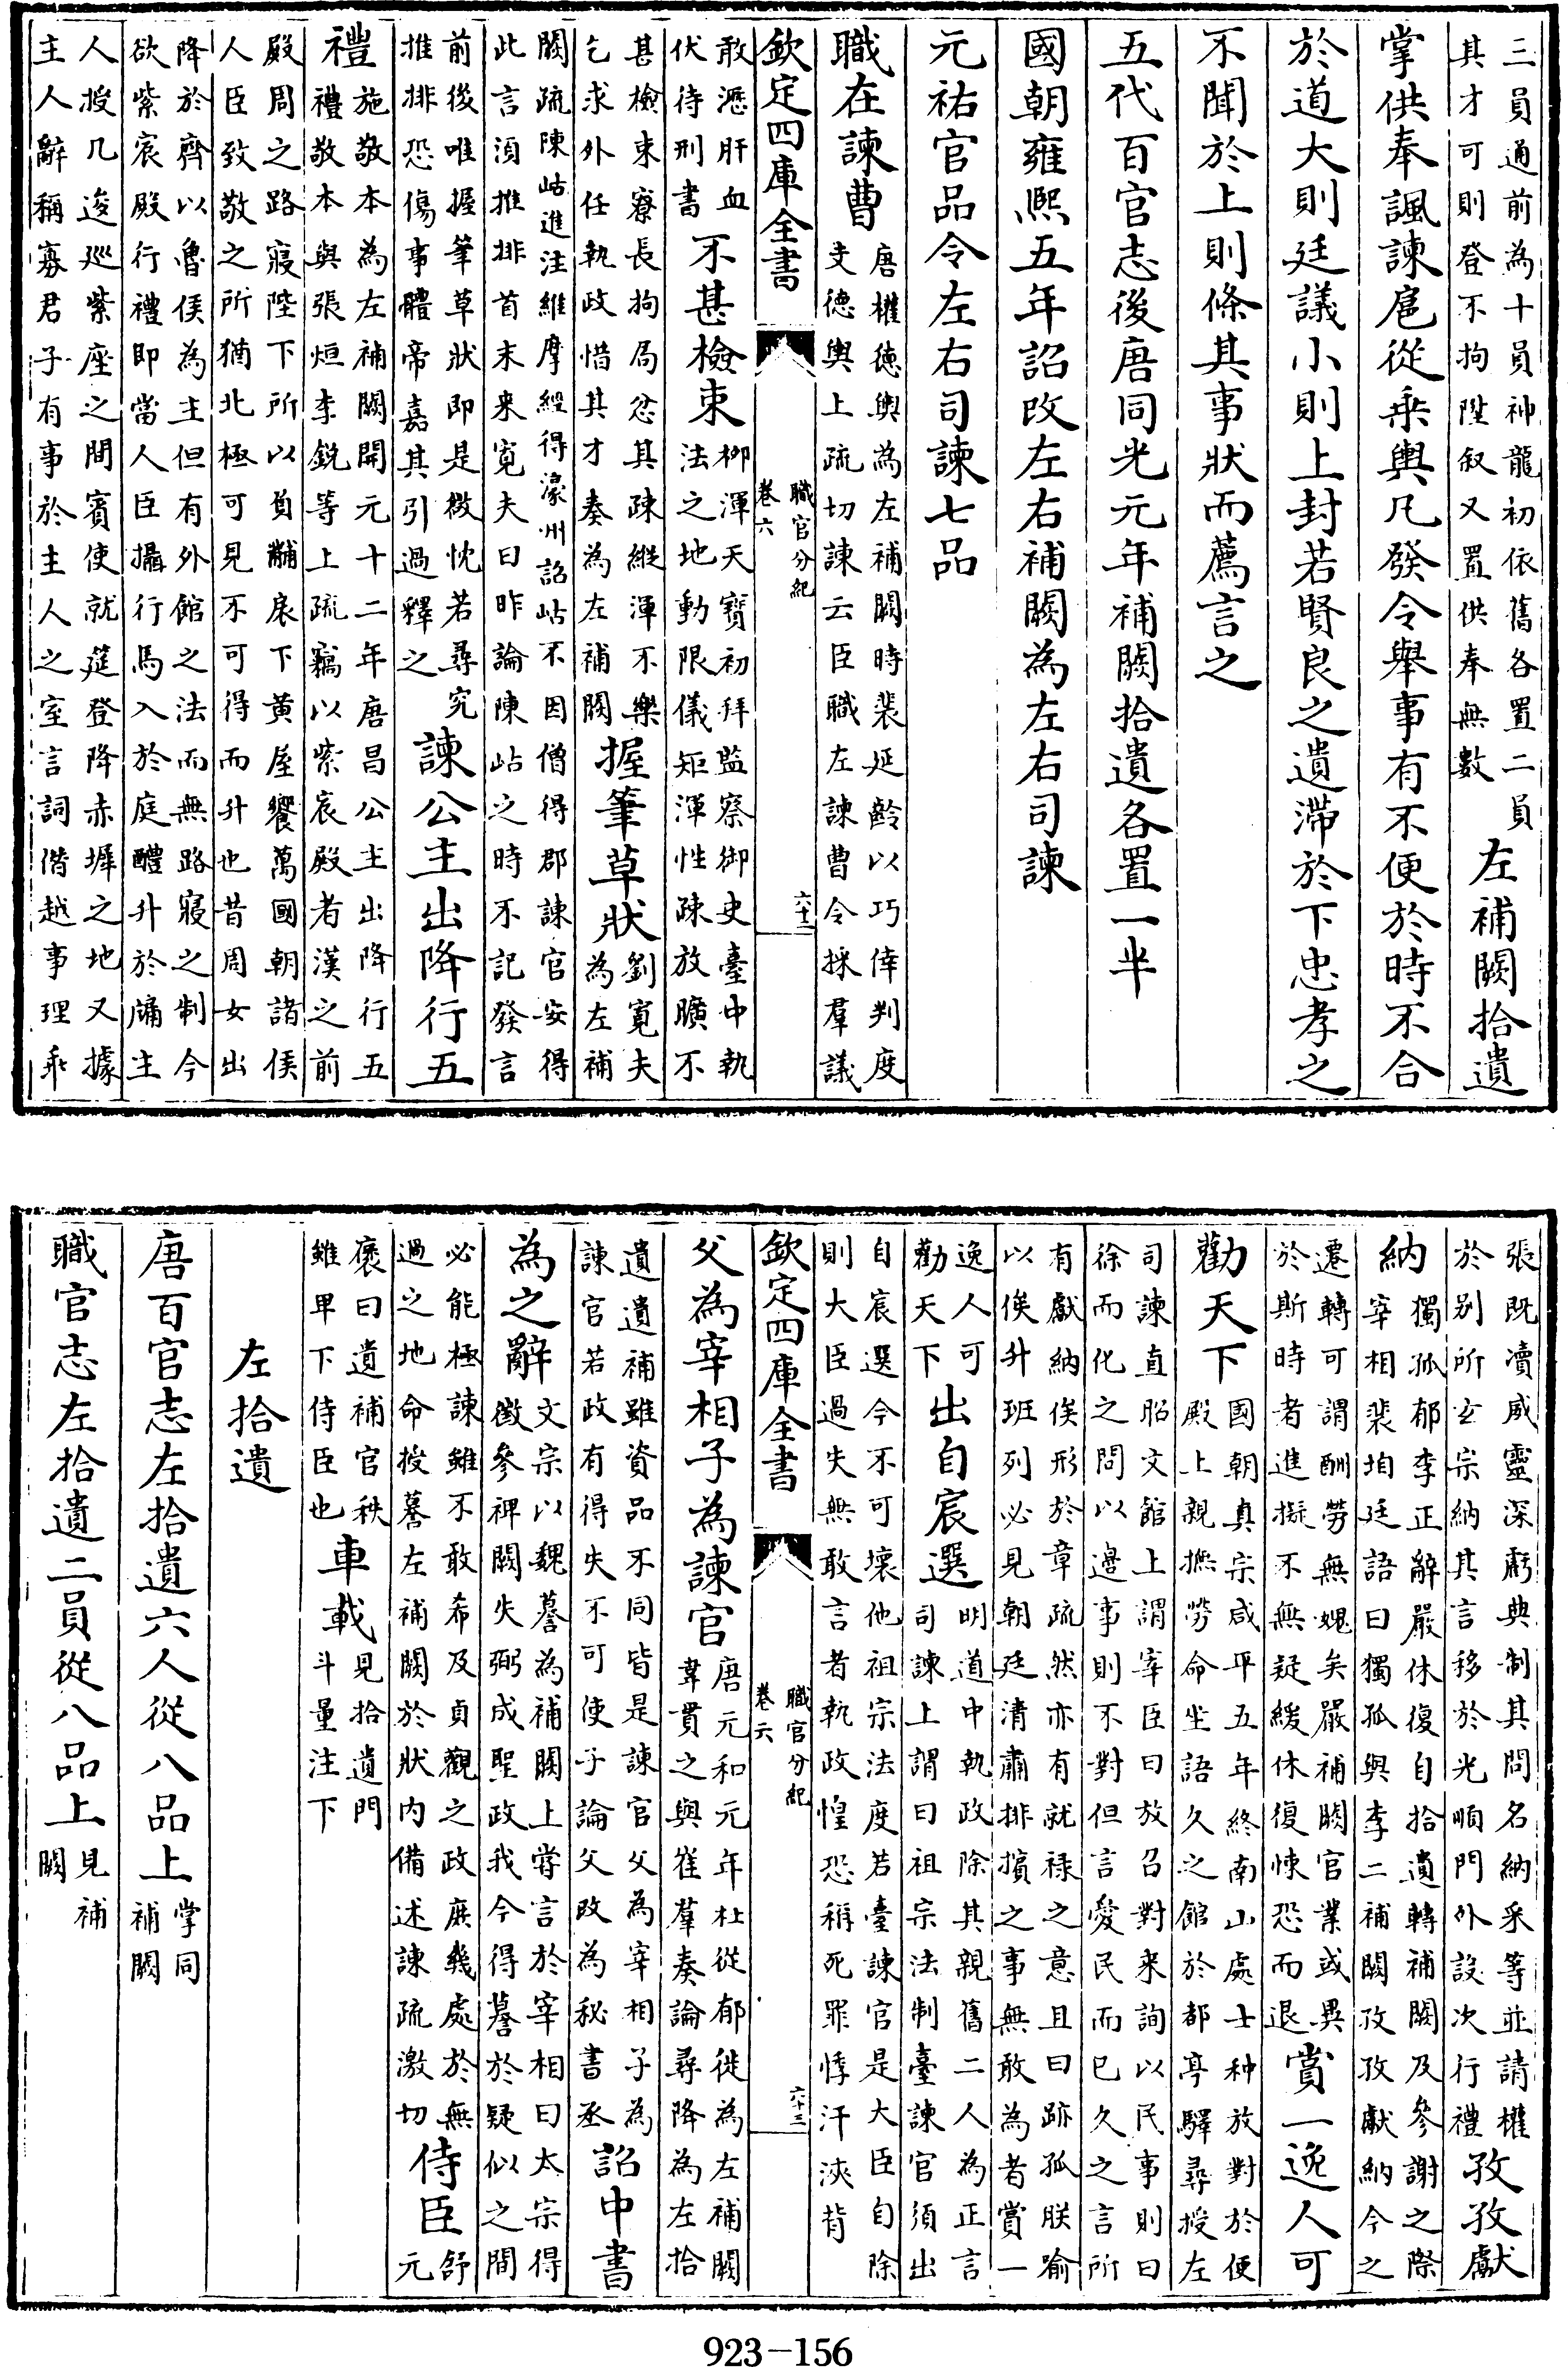 三員通前為十員神龍初依舊各置二員
其才可則登不拘陛叙又置供奉無數
左補闕拾遺
掌供奉諷諫扈從乘輿凡發令舉事有不便於時不合
於道大則廷議小則上封若賢良之遺滯於下忠孝之
不聞於上則條其事狀而薦言之
五代百官志後唐同光元年補闕拾遺各置一半
國朝雍熙五年詔改左右補闕為左右司諫
元祐官品令左右司諫七品
職在諫曹
唐權德輿為左補闕時裴延齡以巧倖判度
支德輿上疏切諫云臣職左諫曹令採羣議
欽定四庫全書
職官分紀
卷六
六十二
敢瀝肝血
伏待刑書
不甚檢束
柳渾天寶初拜監察御史臺中執
法之地動限儀矩渾性疎放曠不
甚檢束寮長拘局忿其疎縱渾不樂
乞求外任執政惜其才奏為左補闕
握筆草狀
劉寬夫
為左補
闕疏陳岵進注維摩經得濠州詔岵不因僧得郡諫官安得
此言須推排首末來寬夫曰昨論陳岵之時不記發言
前後唯握筆草狀即是微忱若尋究
推排恐傷事體帝嘉其引過釋之
諫公主出降行五
禮
施敬本為左補闕開元十二年唐昌公主出降行五
禮敬本與張烜李銳等上疏竊以紫宸殿者漢之前
殿周之路寢陛下所以負黼扆下黃屋饗萬國朝諸侯
人臣致敬之所猶北極可見不可得而升也昔周女出
降於齊以魯侯為主但有外館之法而無路寢之制今
欲紫宸殿行禮即當人臣攝行馬入於庭醴升於牖主
人授几逡巡紫座之間賓使就筵登降赤墀之地又據
主人辭稱寡君子有事於主人之室言詞僭越事理乖
張既瀆威靈深虧典制其問名納采等並請權
於別所玄宗納其言移於光順門外設次行禮
孜孜獻
納
獨孤郁李正辭嚴休復自拾遺轉補闕及參謝之際
宰相裴垍廷語曰獨孤與李二補闕孜孜獻納今之
遷轉可謂酬勞無媿矣嚴補闕官業或異
於斯時者進擬不無疑緩休復悚恐而退
賞一逸人可
勸天下
國朝真宗咸平五年終南山處士种放對於便
殿上親撫勞命坐語久之館於都亭驛尋授左
司諫直昭文館上謂宰臣曰放召對來詢以民事則曰
徐而化之問以邊事則不對但言愛民而已久之言所
有獻納俟形於章疏然亦有就祿之意且曰跡孤朕喻
以俟升班列必見朝廷清肅排擯之事無敢為者賞一
逸人可
勸天下
出自宸選
明道中執政除其親舊二人為正言
司諫上謂曰祖宗法制臺諫官須出
自宸選今不可壞他祖宗法度若臺諫官是大臣自除
則大臣過失無敢言者執政惶恐稱死罪悸汗浹背
欽定四庫全書
職官分紀
卷六
六十三
父為宰相子為諫官
唐元和元年杜從郁徙為左補闕
韋貫之與崔羣奏論尋降為左拾
遺遺補雖資品不同皆是諫官父為宰相子為
諫官若政有得失不可使子論父改為秘書丞
詔中書
為之辭
文宗以魏謩為補闕上嘗言於宰相曰太宗得
徵參裨闕失弼成聖政我今得謩於疑似之間
必能極諫雖不敢希及貞觀之政庶幾處於無
過之地命授謩左補闕於狀內備述諫疏激切
侍臣
舒
元
褒曰遺補官秩
雖卑下侍臣也
車載
見拾遺門
斗量注下
左拾遺
唐百官志左拾遺六人從八品上
掌同
補闕
職官志左拾遺二員從八品上
見補
闕
923-156